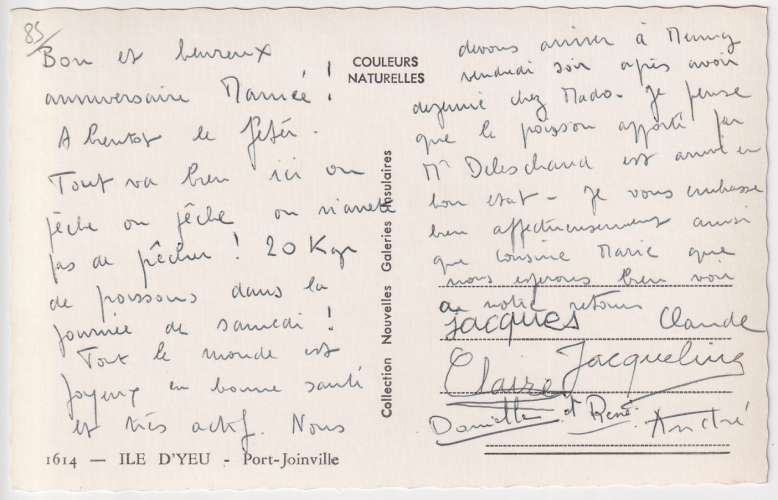 85
Bon et heureux
anniversaire Mamée !
A bientôt le fêter.
Tout va bien ici on
pêche on pêche on n'arrete
pas de pêcher ! 20 Kgs
de poissons dans la
journée de samedi !
Tout le monde est
joyeux en bonne santé
et très actif. Nous
1614 — ILE D'YEU - Port-Joinville
COULEURS
NATURELLES
Collection Nouvelles Galeries Insulaires
devons arriver à
vendredi soir après avoir
dejeuné chez Mado. Je pense
que le poisson apporté par
Mr Deleschaud est arrivé en
bon etat - Je vous embrasse
bien affectueusement ainsi
que cousine Marie que
nous esperons bien voir
a notre retour
Jacques Claude
Claire Jacqueline
Danielle et René André